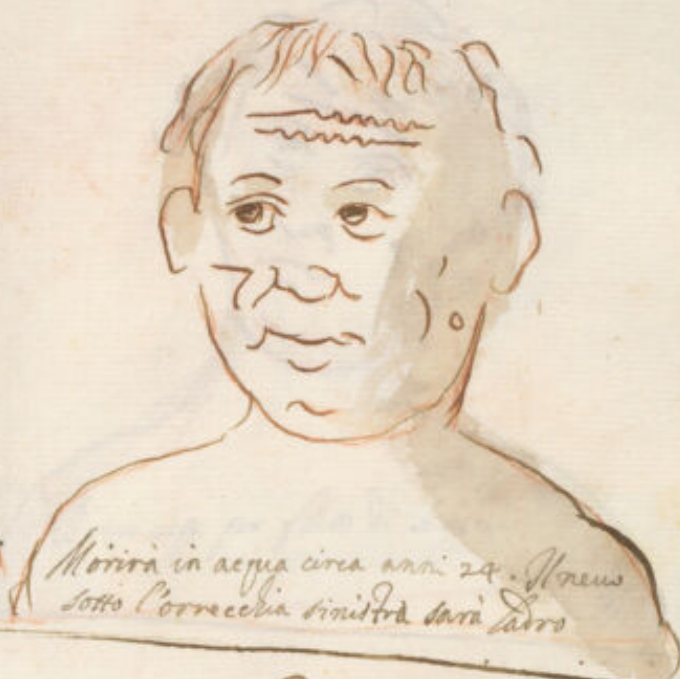 Morirà in acqua circa anni 24. Il nevo
sotto l'orrecchia sinistra sarà ladro